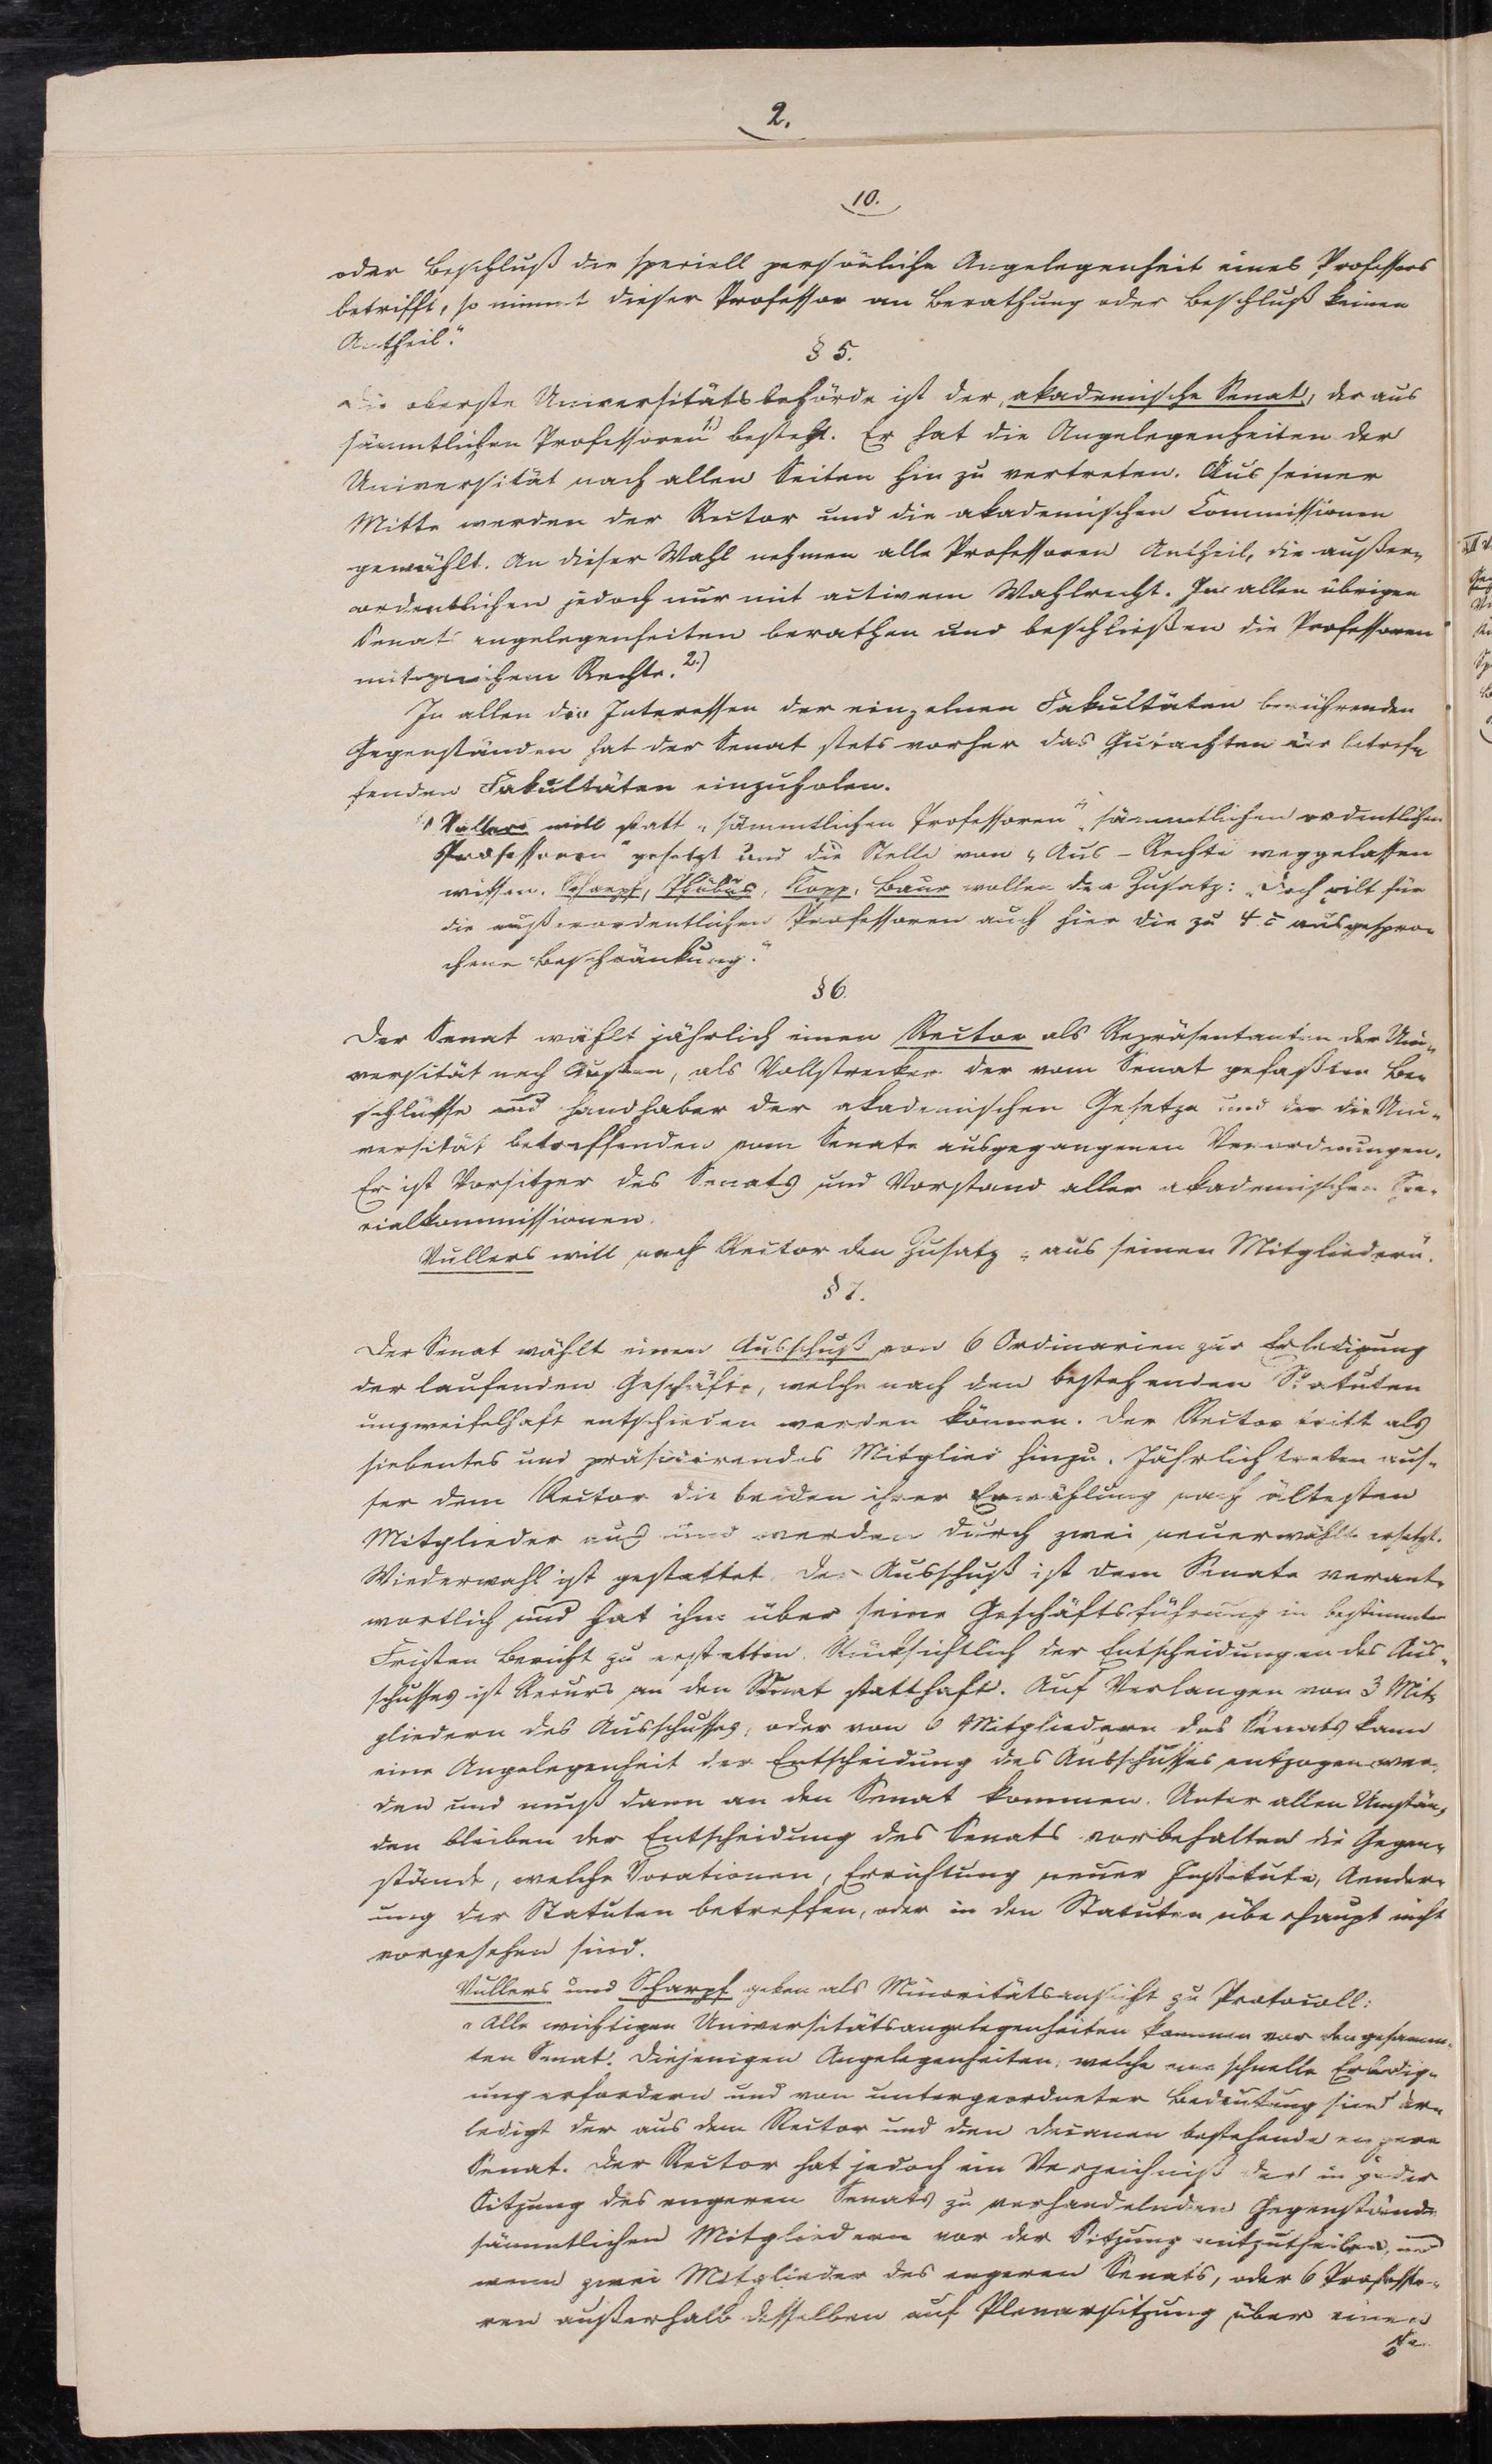 2.
10.
oder Beschluß die speciell persönliche Angelegenheit eines Professors
betrifft, so nimmt dieser Professor an Berathung oder Beschluß keinen
Antheil."
§ 5.
Die oberste Universitätsbehörde ist der akademische Senat, der aus
sämmtlichen Professoren 1.) besteht. Er hat die Angelegenheiten der
Universität nach allen Seiten hin zu vertreten. Aus seiner
Mitte werden der Rector und die akademischen Commissionen
gewählt. An dieser Wahl nehmen alle Professoren Antheil, die außer-
ordentlichen jedoch nur mit activem Wahlrecht. In allen übrigen
Senatsangelegenheiten berathen und beschließen die Professoren
mit gleichem Rechte. 2.)
In allen die Interessen der einzelnen Fakultäten berührenden
Gegenständen hat der Senat stets vorher das Gutachten der betref-
fenden Fakultäten einzuholen.
Vullers will statt „sämmtlichen Professoren" „sämmtlichen ordentlichen
Professoren" gesetzt und die Stelle von „Aus – Rechte weggelassen
wissen. Scharpf, Phöbus, Kopp, Baur wollen den Zusatz: „Doch gilt für
die außerordentlichen Professoren auch hier die zu 4 c ausgespro-
chene Beschränkung."
§ 6.
Der Senat wählt jährlich einen Rector als Repräsentanten der Uni-
versität nach Außen, als Vollstrecker der vom Senat gefaßten Be-
schlüsse und Handhaber der akademischen Gesetze und der die Uni-
versität betreffenden vom Senate ausgegangenen Verordnungen.
Er ist Vorsitzer des Senats und Vorstand aller akademischen Spe-
cialkommissionen.
Vullers will nach Rector den Zusatz „aus seinen Mitgliedern".
§ 7.
Der Senat wählt einen Ausschuß von 6 Ordinarien zur Erledigung
der laufenden Geschäfte, welche nach den bestehenden Statuten
unzweifelhaft entschieden werden können. Der Rector tritt als
siebentes und präsidirendes Mitglied hinzu. Jährlich treten aus-
ser dem Rector die beiden ihrer Erwählung nach ältesten
Mitglieder aus und werden durch zwei neuerwählte ersetzt.
Wiederwahl ist gestattet. Der Ausschuß ist dem Senate verant-
wortlich und hat ihm über seine Geschäftsführung in bestimmten
Fristen Bericht zu erstatten. Rücksichtlich der Entscheidungen des Aus-
schusses ist Recurs an den Senat statthaft. Auf Verlangen von 3 Mit-
gliedern des Ausschusses, oder von 6 Mitgliedern des Senats kann
eine Angelegenheit der Entscheidung des Ausschusses entzogen wer-
den und muß dann an den Senat kommen. Unter allen Umstän-
den bleiben der Entscheidung des Senats vorbehalten die Gegen-
stände, welche Vocationen, Errichtung neuer Institute, Aender-
ung der Statuten betreffen, oder in den Statuten überhaupt nicht
vorgesehen sind.
Vullers und Scharpf geben als Minoritätsansicht zu Protocoll:
„Alle wichtigen Universitätsangelegenheiten kommen vor den gesamm-
ten Senat. Diejenigen Angelegenheiten, welche eine schnelle Erledig-
ung erfordern und von untergeordneter Bedeutung sind er-
ledigt der aus dem Rector und den Decanen bestehende engere
Senat. Der Rector hat jedoch ein Verzeichniß der in jeder
Sitzung des engeren Senats zu verhandelnden Gegenstände
sämmtlichen Mitgliedern vor der Sitzung mitzutheilen, und
wenn zwei Mitglieder des engeren Senats, oder 6 Professo-
ren außerhalb desselben auf Plenarsitzung über einen